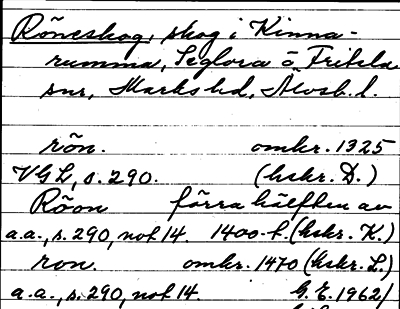 Röneskog, skog i Kinna-
rumma, Seglora o. Fritsla
snr, Marks hd, Älvsb. l.
rön. omkr. 1325
VGL, s. 290. (hskr. D.)
Röon förra hälften av
a.a., s. 290, not 14. 1400-t. (hskr. K.)
ron. omkr. 1470 (hskr. L.)
a.a., s. 290, not 14. G.E. 1962/